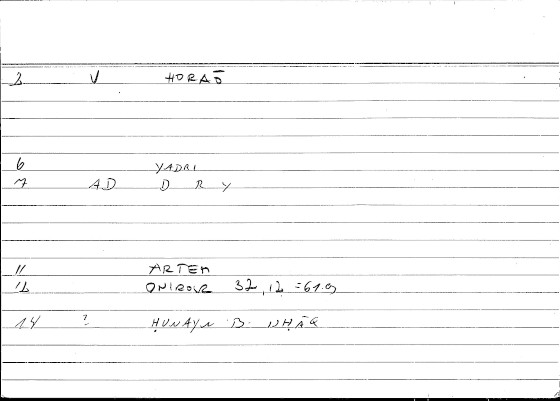 3 V HORAŌ
6 YADRI
7 AD D R Y
11 ARTEM
12 ONIROCR 32,12 = 61.9
14 ? ḤUNAYN B. ISḤĀQ